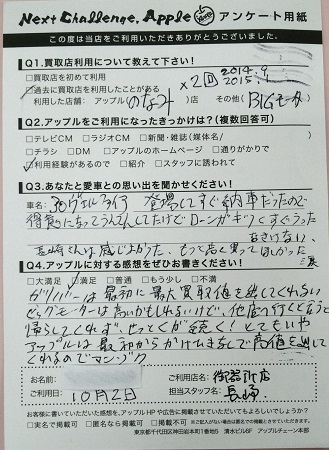 Next Challenge, Apple アンケート用紙
この度は当店をご利用いただきありがとうございました。
Q1.買取店利用について教えて下さい!
□買取店を初めて利用
□過去に買取店を利用したことがある ×2回 2014.9 2015.
利用した店舗: アップル( )店 その他(BIGモータ
Q2.アップルをご利用になったきっかけは?(複数回答可)
□テレビCM □ラジオCM □新聞・雑誌(媒体名/ )
□チラシ □DM □アップルのホームページ □通りがかりで
□利用経験があるので □紹介 □スタッフに誘われて
Q3.あなたと愛車との思い出を聞かせください!
車名: 30ヴェルファイア 登場してすぐ納車だったので
得意になってうんてんしてたけどローンがキツくすぐうった
なさけない、
長崎さんは感じよかった、もっと高く買ってほしかった
Q4.アップルに対する感想をぜひお書きください!
□大満足 □満足 □普通 □もう少し □不満
ガリバーは最初に最大買取値を出してくれない
ビックモーターは高いかもしれないけど、他店行くと言うと
帰らしてくれず、せっとくが続く!とてもいや
アップルは最初からかけひきなしで高値を出して
くれるのでマンゾク
お名前:
ご利用日: 10月2日
ご利用店名: 御器所店
担当スタッフ名: 長崎
お客様に書いていただいた感想を、アップルHPや広告に掲載させていただいてもよろしいでしょうか?
□実名で掲載可 □匿名なら掲載可 □掲載不可
東京都千代田区神田岩本町1番地5 清水ビル6F アップルチェーン本部